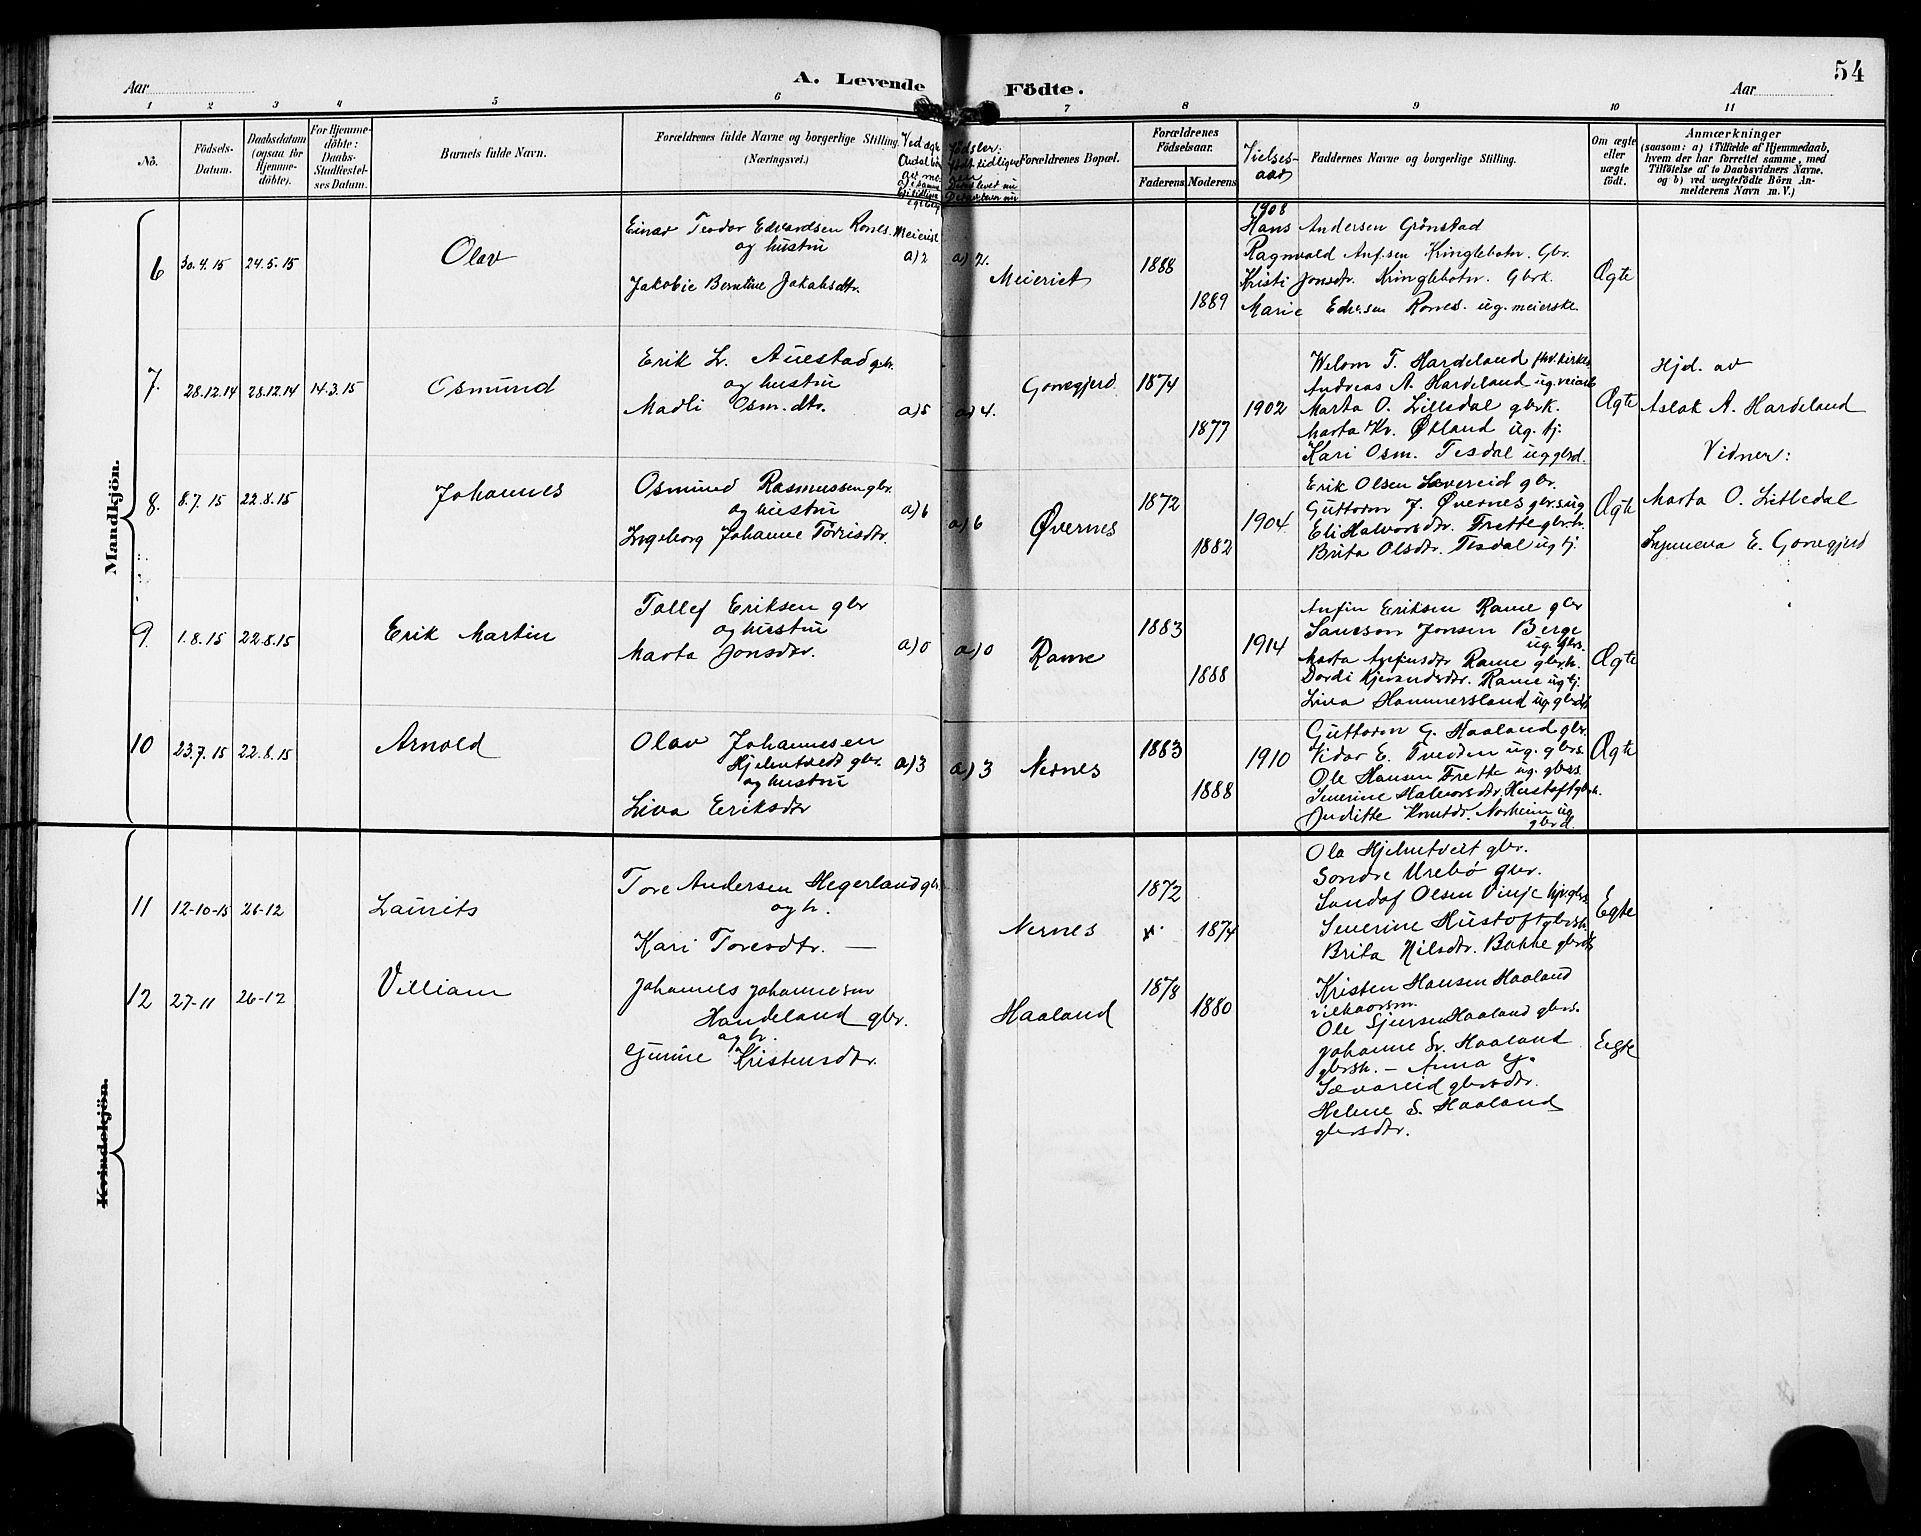 54
A. Levende Födte.
Aar
Aar
1 2 3 4 5 6 7 8 9 10 11
No.
Födsels-Datum.
Daabsdatum (ogsaa for Hjemme-döbte).
For Hjemme-döbte: Daabs-Stadfæstel-ses Datum.
Barnets fulde Navn.
Forældrenes fulde Navne og borgerlige Stilling.
(Næringsvei.)
Forældrenes Bopæl.
Forældrenes Födselsaar.
Faderens Moderens
Vielses-aar
Faddernes Navne og borgerlige Stilling.
Om ægte eller uægte födt.
Anmærkninger
(saasom: a) i Tilfælde af Hjemmedaab, hvem der har forrettet samme, med Tilföielse af to Daabsvidners Navne, og b) ved uægtefödte Börn An-melderens Navn m. V.)
Mandkjön.
6
30.4.15
24.5.15
Olav
Einar Teodor Edvardsen Rones. Meierist
og hustru
Jakobie Berntine Jakobsdtr.
a) 2
a) 2.
Meieriet
1888
1889
1908
Hans Andersen Grönstad
Ragnvald Anfsen Kringlebotn. Gbr.
Kristi Jonsdtr. Kringlebotn. Gbrk.
Marie Edv.sen Rones. ug. meierske.
Ægte
7.
28.12.14
28.12.14
14.3.15
Osmund
Erik L. Auestad gbr.
og hustru
Madli Osm.dtr.
a) 5
a) 4.
Gonegjerd
1874
1877
1902
Andreas A. Hardeland
Marta O. Lillsdal gbrk.
Marta Kr. Økland ug. tj.
Kari Osm. Tesdal ug gbrd.
Ægte
Hjd. av
Aslak A. Hardeland
Vidner:
Marta O. Litledal
E. Gonegjerd
8.
8.7.15
22.8.15
Johannes
Osmund Rasmussen gbr.
og hustru
Ingeborg Johanne Torrisdtr.
a) 6
a) 6
Øvernes
1872
1882
1904
Erik Olsen Sævereid gbr.
Guttorm J. Øvernes gbr.s. ug
Eli Halvorsdtr. Frette gbr.k.
Brita Olsdtr. Tesdal ug tj.
Ægte
9.
1.8.15
22.8.15
Erik Martin
Tollef Eriksen gbr
og hustru
Marta Jonsdtr.
a) 0
a) 0
Rame
1883
1888
1914
Anfin Eriksen Rame gbr
Samson Jonsen Berge
ug. gbrs.
Marta Anfinsdtr Rame gbr.k.
Dordi Rame ug tj.
Liva Hammersland ug. gbrdt.
Ægte
10
23.7.15
22.8.15
Arnold
Olav Johannesen
Hjelmtvedt gbr.
og hustru
Liva Eriksdtr
a) 3
a) 3
Nernes
1883
1888
1910
Guttorm G. Haaland gbr.
Vidar E. Tveden ug. gbrs.
Ole Hansen Frette ug. gbrs.
Severine Halvorsdtr. Hustoft gbrk.
Juditte Knutdr. Norheim ug
gbrd.
Ægte
Kvindekjön.
11
12-10-15
26-12
Laurits
Tore Andersen Hegerland gbr
og h.
Kari Toresdtr. —
Nernes
1872
x.
1874
Ole Hjelmtveit gbr.
Sondre Urebø gbr.
Olsen Vinje
Severine Hustoft gbrsk.
Brita Nilsdtr. Bakke gbrdtr
Egte
12
27-11
26-12
Villiam
Johannes Johannesen
Handeland gbr.
og h.
Gurine Kristensdtr.
Haaland
1878
1880
Kristen Hansen Haaland
Ole Sjursen Haaland gbrs.
Johanne Sr. Haaland
gbrsk. — Anna G.
Sævareid gbrsdtr.
Helene S. Haaland
gbrsdtr.
Egte